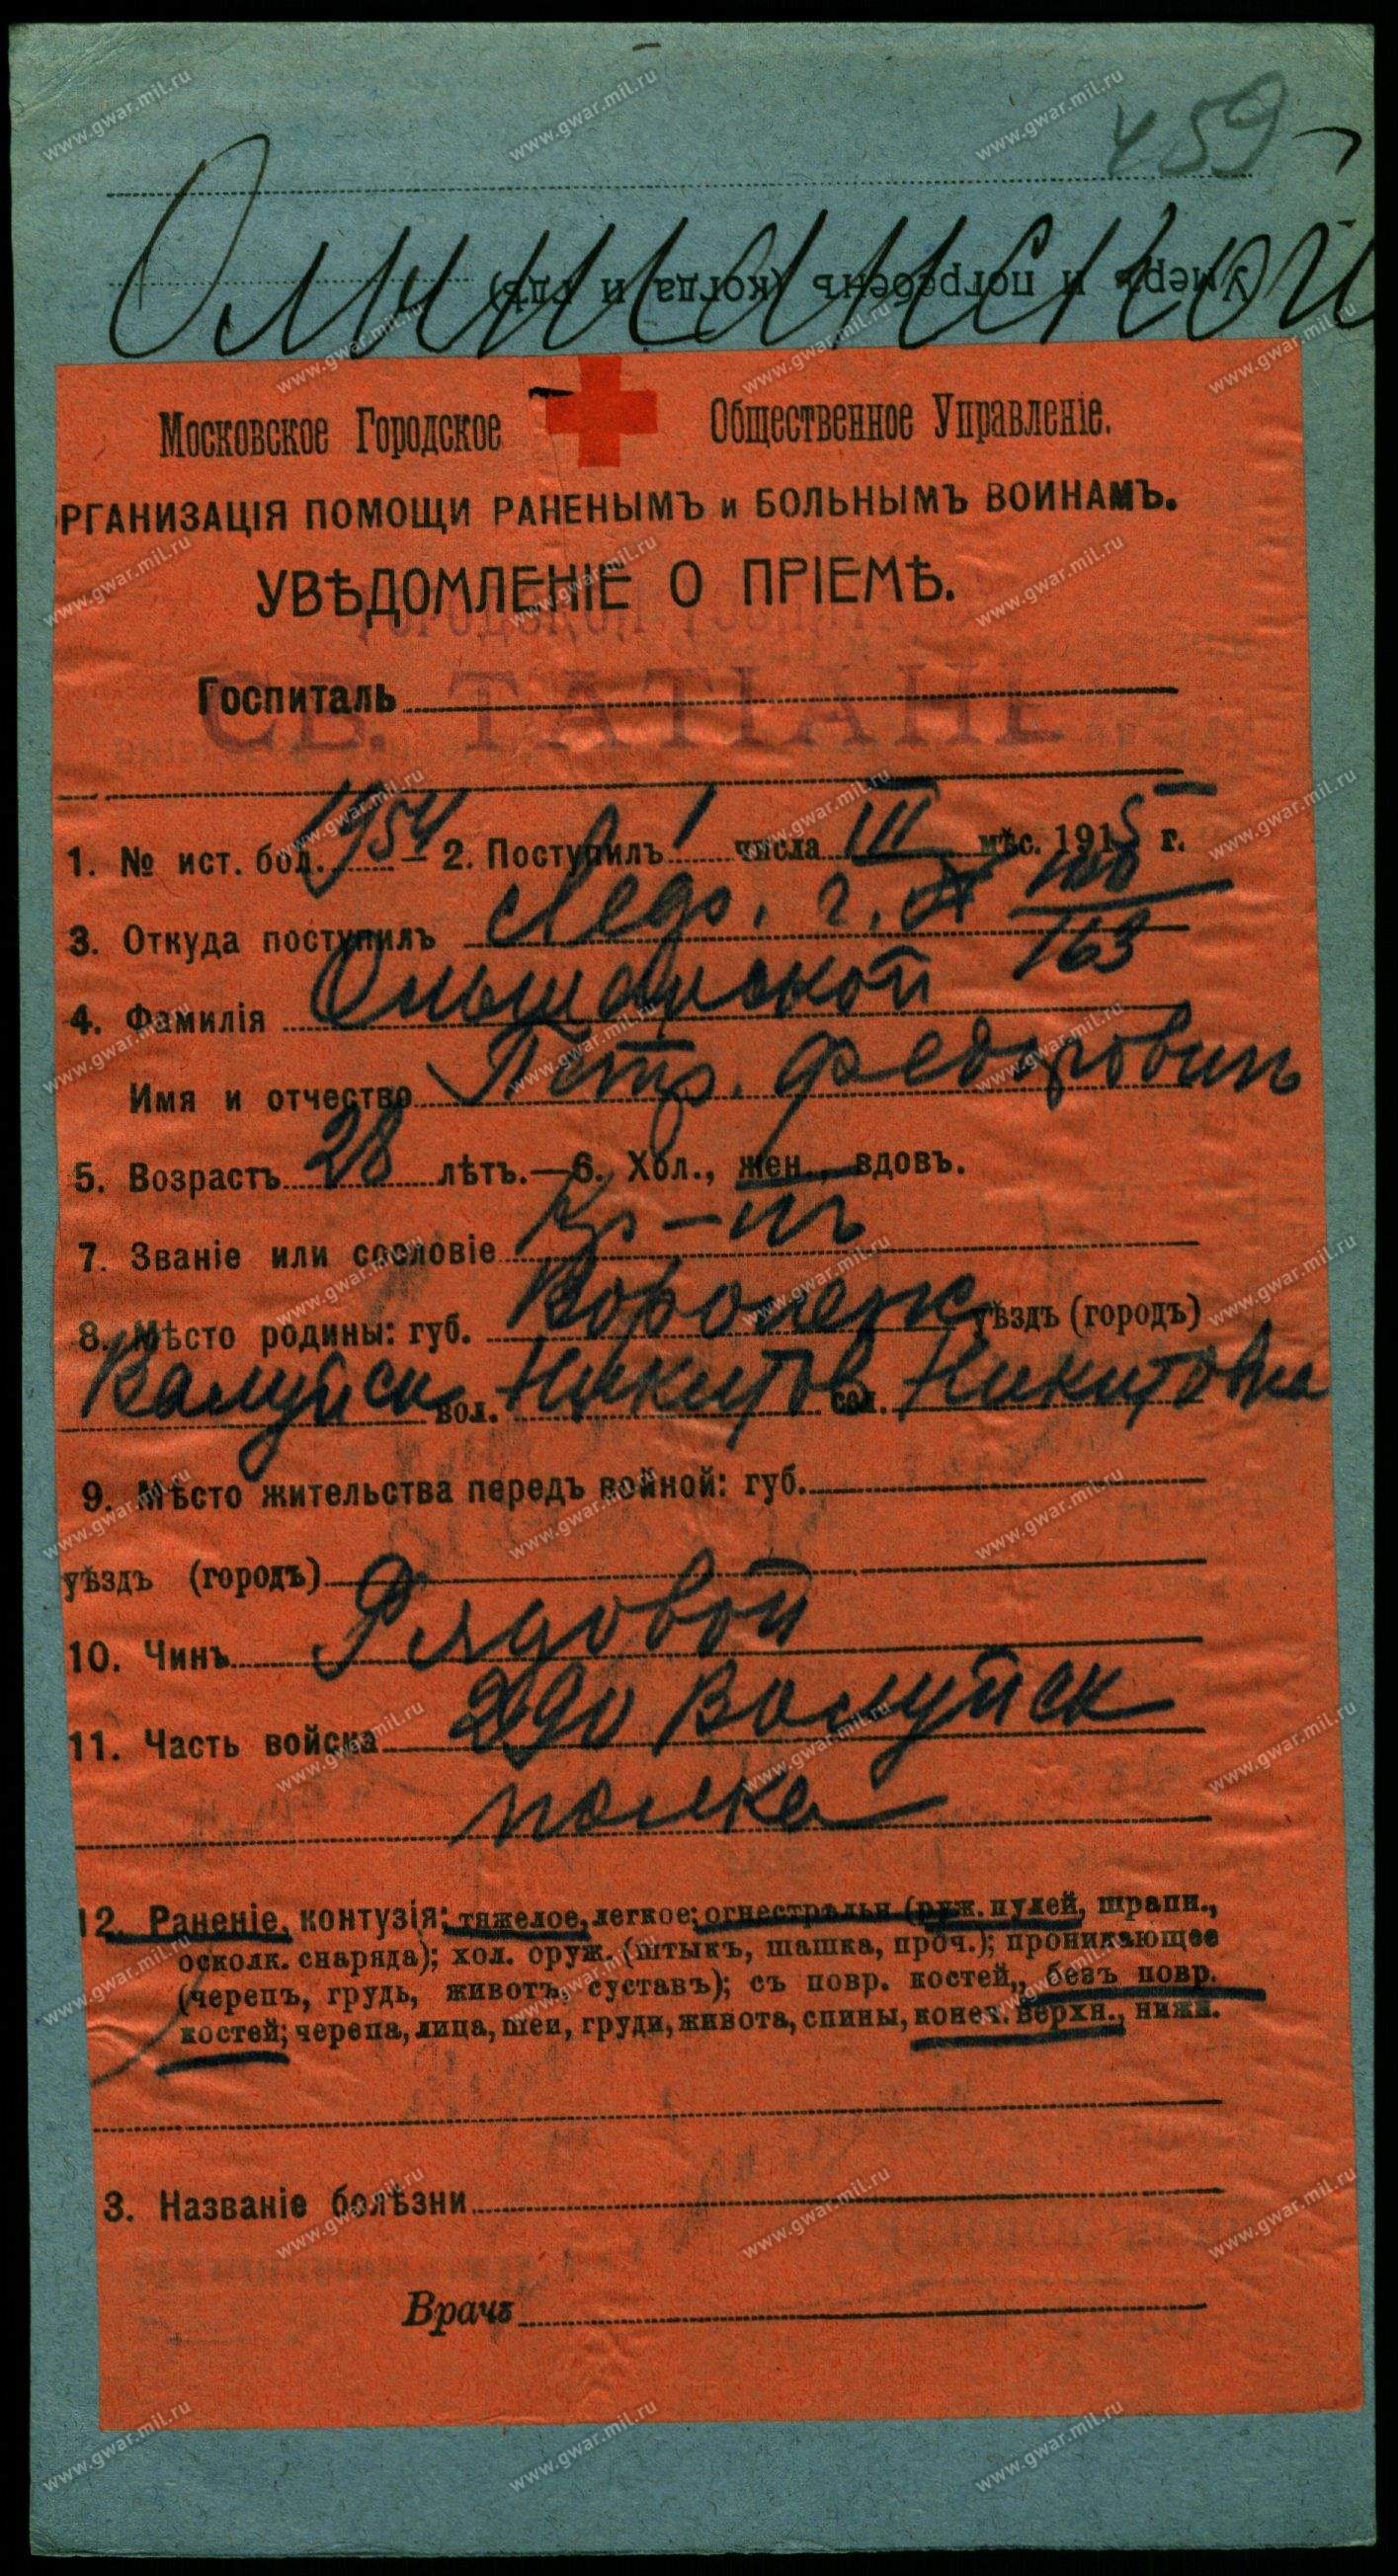 459
Олишанской
Умеръ и погребенъ (когда и гдѣ)
Московское Городское Общественное Управленіе.
РГАНИЗАЦІЯ ПОМОЩИ РАНЕНЫМЪ и БОЛЬНЫМЪ ВОИНАМЪ.
УВѢДОМЛЕНІЕ О ПРІЕМѢ.
Госпиталь
СВ. ТАТІАНЫ
1. № ист. бол. 1954 – 2. Поступилъ 1 числа III мѣс. 1915 г.
3. Откуда поступилъ 163
4. Фамилія Ольшанской
Имя и отчество Петр. Федорович
5. Возрастъ 28 лѣтъ.—6. Хол., жен., вдовъ.
7. Званіе или сословіе Кр-нъ
8. Мѣсто родины: губ. Воронеж уѣздъ (городъ)
Валуйск вол. Никитов сел. Никитовка
9. Мѣсто жительства передъ войной: губ.
уѣздъ (городъ)
10. Чинъ Рядовой
11. Часть войска 290 Валуйск
полка
12. Раненіе, контузія: тяжелое, легкое; огнестрѣльн (руж. пулей, шрапн.,
осколк. снаряда); хол. оруж. (штыкъ, шашка, проч.); проникающее
(черепъ, грудь, животъ, суставъ); съ повр. костей,, безъ повр.
костей; черепа, лица, шеи, груди, живота, спины, конеч. верхн., нижн.
3. Названіе болѣзни
Врачъ